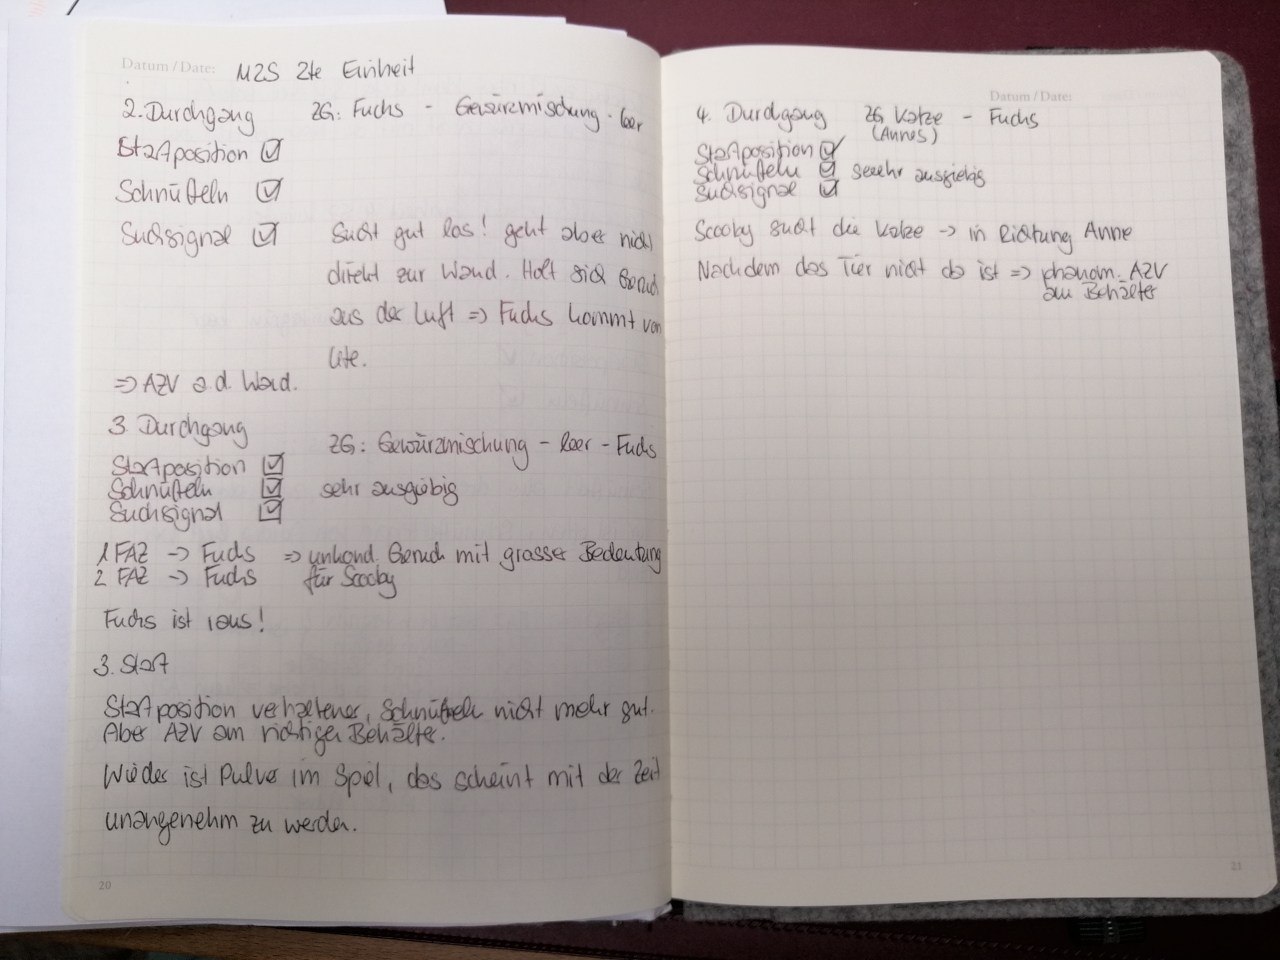 Datum / Date: M2S 2te Einheit
2. Durchgang ZG: Fuchs - Gewürzmischung - leer
Startposition ☑
Schnüffeln ☑
Suchsignal ☑ Sucht gut los! geht aber nicht
direkt zur Wand. Holt sich Geruch
aus der Luft => Fuchs kommt von
Ute.
=> AZV a.d. Wand.
3. Durchgang
ZG: Gewürzmischung - leer - Fuchs
Startposition ☑
Schnüffeln ☑ sehr ausgiebig
Suchsignal ☑
1 FAZ -> Fuchs => unkond. Geruch mit grosser Bedeutung
2 FAZ -> Fuchs für Scooby
Fuchs ist raus!
3. Start
Startposition verhaltener, Schnüffeln nicht mehr gut.
Aber AZV am richtigen Behälter.
Wieder ist Pulver im Spiel, das scheint mit der Zeit
unangenehm zu werden.
20
Datum / Date:
4. Durchgang ZG Katze - Fuchs
(Annes)
Startposition ☑
Schnüffeln ☑ seeehr ausgiebig
Suchsignal ☑
Scooby sucht die Katze -> in Richtung Anne
Nachdem das Tier nicht da ist => phänom. AZV
am Behälter
21